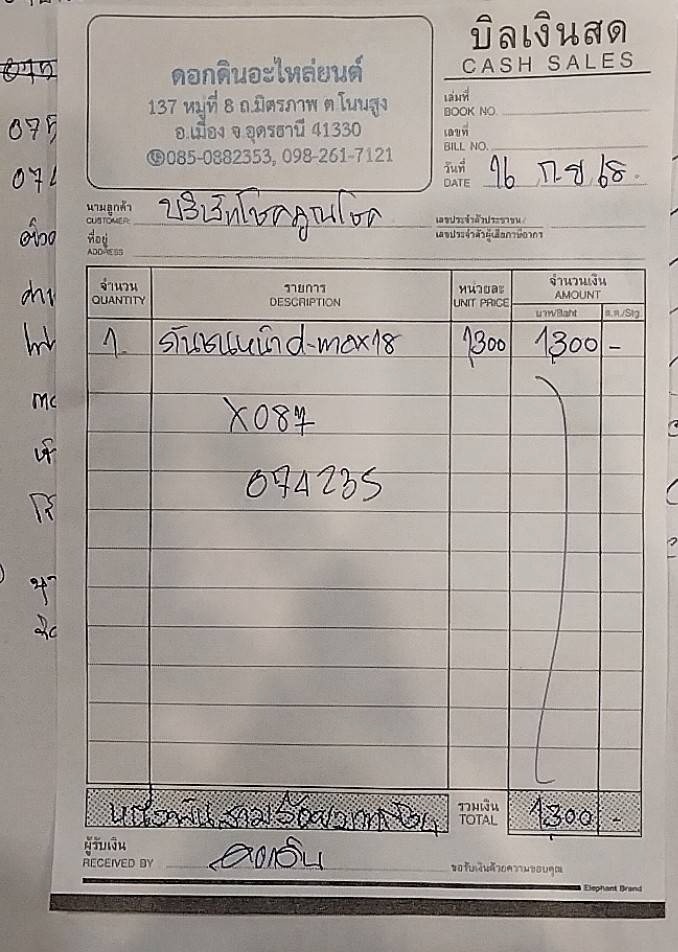 บิลเงินสด
CASH SALES
ดอกดินอะไหล่ยนต์
137 หมู่ที่ 8 ถ.มิตรภาพ ต.โนนสูง
อ.เมือง จ.อุดรธานี 41330
085-0882353, 098-261-7121
เล่มที่
BOOK NO.
เลขที่
BILL NO.
วันที่
DATE 16 ก.ย 68.
นามลูกค้า
CUSTOMER บริษัทโชคคูณโชค
เลขประจำตัวประชาชน/
เลขประจำตัวผู้เสียภาษีอากร
ที่อยู่
ADDRESS
จำนวน รายการ หน่วยละ จำนวนเงิน
QUANTITY DESCRIPTION UNIT PRICE AMOUNT
บาท/Baht ส.ต./Stg.
1. กันชนหน้า d-max18 1300 1300 -
X087
074235
หนึ่งพันสามร้อยบาทถ้วน รวมเงิน TOTAL 1300 -
ผู้รับเงิน
RECEIVED BY ดอกดิน
ขอรับเงินด้วยความขอบคุณ
Elephant Brand